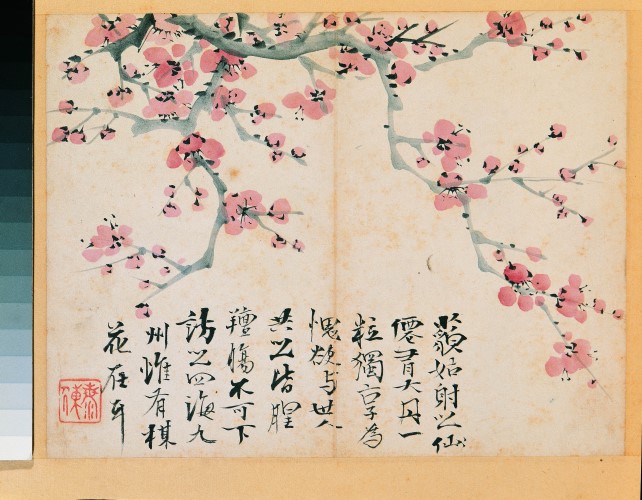 藐姑射之仙
僊有大丹一
粒獨為
愧欲与世人
共之皆腥
羶膓不可下
訪之四海九
州惟有楳
花在耳